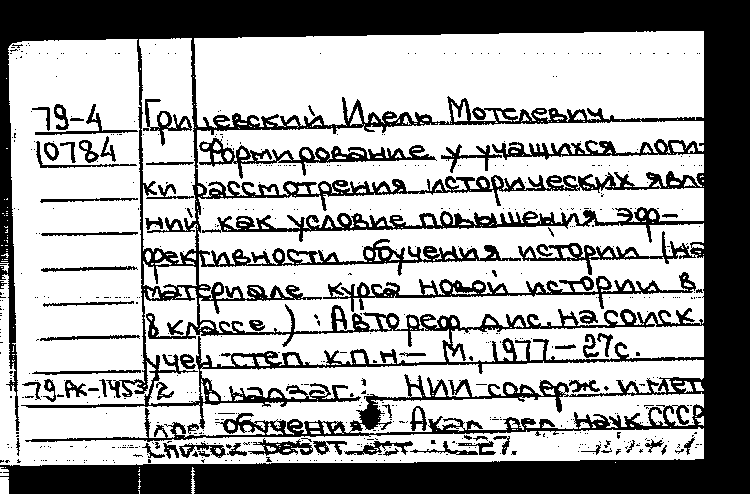 79-4 Грицевский, Идель Мотелевич.
10784 Формирование у учащихся логи-
ки рассмотрения исторических явле
ний как условие повышения эф-
фективности обучения истории (на
материале курса новой истории в
8 классе.) : Автореф. дис. на соиск.
учен. степ. к.п.н. – М., 1977. – 27с.
79-АК-1453/2 В надзаг.: НИИ содерж. и мет
дов обучения Акад. пед. наук СССР
Список работ авт.: с. 27.